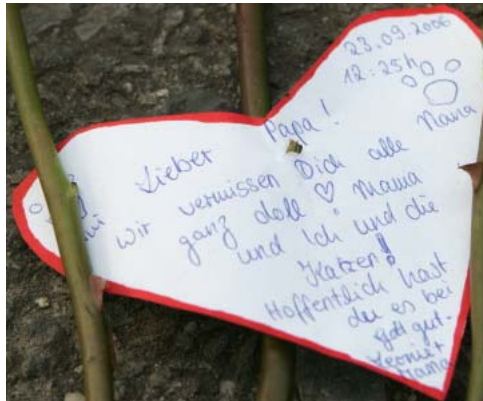 23.09.2006
12:25h
Lieber Papa!
wir vermissen Dich alle
ganz doll ♡ Mama
und Ich und die
Katzen!
Hoffentlich hast
du es bei
gott gut.
Leonie +
Mama
Nana